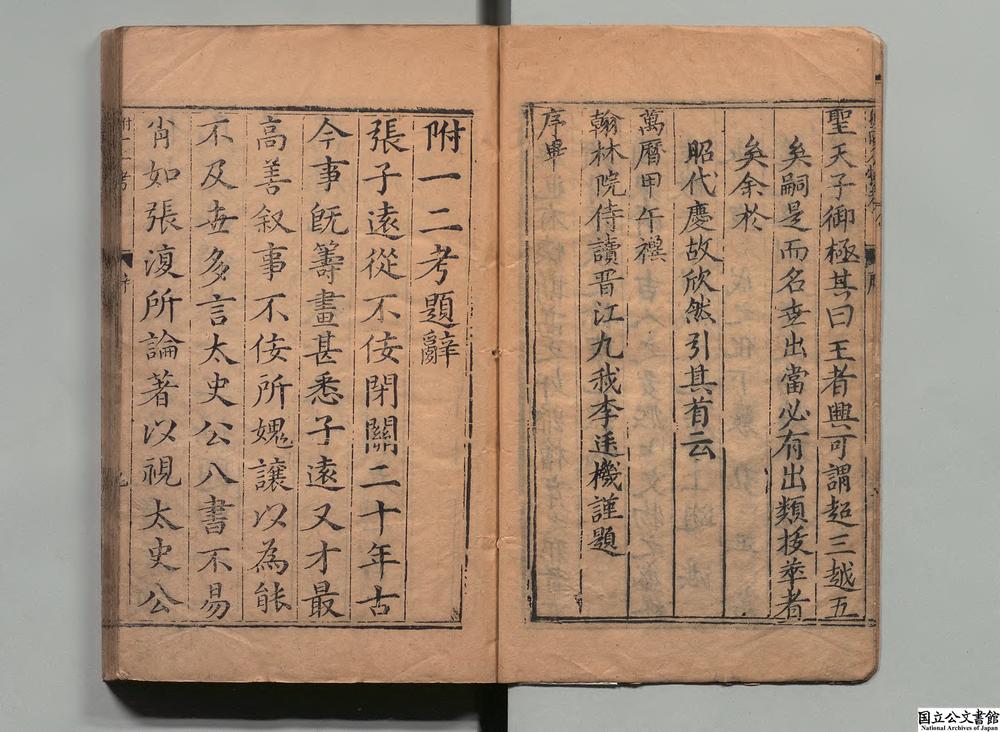 聖天子御極其曰王者興可謂超三越五
矣嗣是而名世出當必有出類拔萃者
矣余於
昭代慶故欣然引其首云
萬曆甲午禩
翰林院侍讀晉江九我李廷機謹題
序畢
附一二考題辭
張子遠從不佞閉關二十年古
今事旣籌畫甚悉子遠又才最
高善叙事不佞所媿讓以為能
不及世多言太史公八書不易
肖如張湏所論著以視太史公
国立公文書館
National Archives of Japan